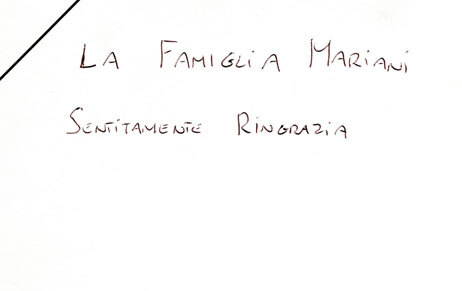 La Famiglia Mariani
Sentitamente Ringrazia